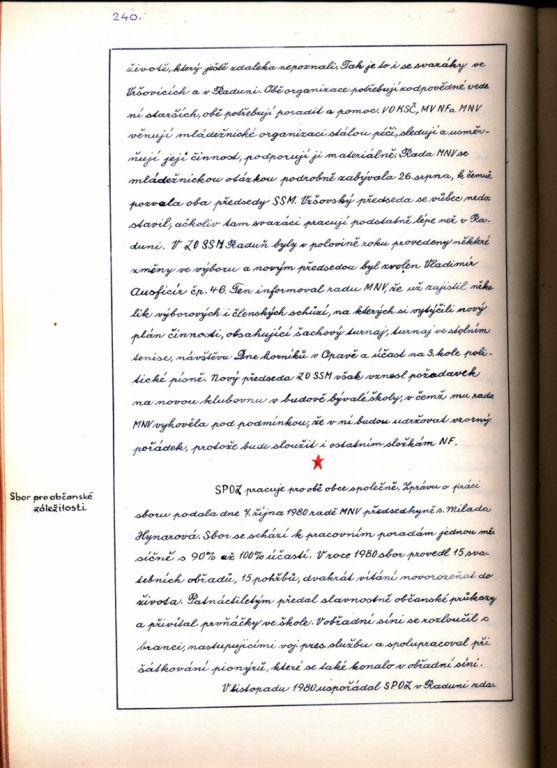 240.
životě, který ještě zdaleka nepoznali. Tak je to i se svazáky ve
Vršovicích a v Raduni. Obě organizace potřebují zodpovědné vede
ní starších, obě potřebují poradit a pomoc. VO KSČ, MV NF a MNV
věnují mládežnické organizaci stálou péči, sledují a usměr-
ňují její činnost, podporují ji materiálně. Rada MNV se
mládežnickou otázkou podrobně zabývala 26. srpna, k čemuž
pozvala oba předsedy SSM. Vršovský předseda se vůbec nedo
stavil, ačkoliv tam svazáci pracují podstatně lépe než v Ra-
duni. V ZO SSM Raduň byly v polovině roku provedeny některé
změny ve výboru a novým předsedou byl zvolen Vladimír
Ausficír čp. 46. Ten informoval radu MNV, že už zajistil něko
lik výborových i členských schůzí, na kterých si vytýčili nový
plán činnosti, obsahující šachový turnaj, turnaj ve stolním
tenise, návštěvu Dne horníků v Opavě a účast na 3. kole poli-
tické písně. Nový předseda ZO SSM však vznesl požadavek
na novou klubovnu v budově bývalé školy, v čemž mu rada
MNV vyhověla pod podmínkou, že v ní budou udržovat vzorný
pořádek, protože bude sloužit i ostatním složkám NF.
Sbor pro občanské
záležitosti
SPOZ pracuje pro obě obce společně. Zprávu o práci
sboru podala dne 7. října 1980 radě MNV předsedkyně s. Milada
Hynarová. Sbor se schází k pracovním poradám jednou mě
síčně s 90% až 100% účastí. V roce 1980 sbor provedl 15 sva-
tebních obřadů, 15 pohřbů, dvakrát vítání novorozeňat do
života. Patnáctiletým předal slavnostně občanské průkazy
a přivítal prvňáčky ve škole. V obřadní síni se rozloučil s
branci, nastupujícími voj. pres. službu a spolupracoval při
šátkování pionýrů, které se také konalo v obřadní síni.
V listopadu 1980 uspořádal SPOZ v Raduni zda-